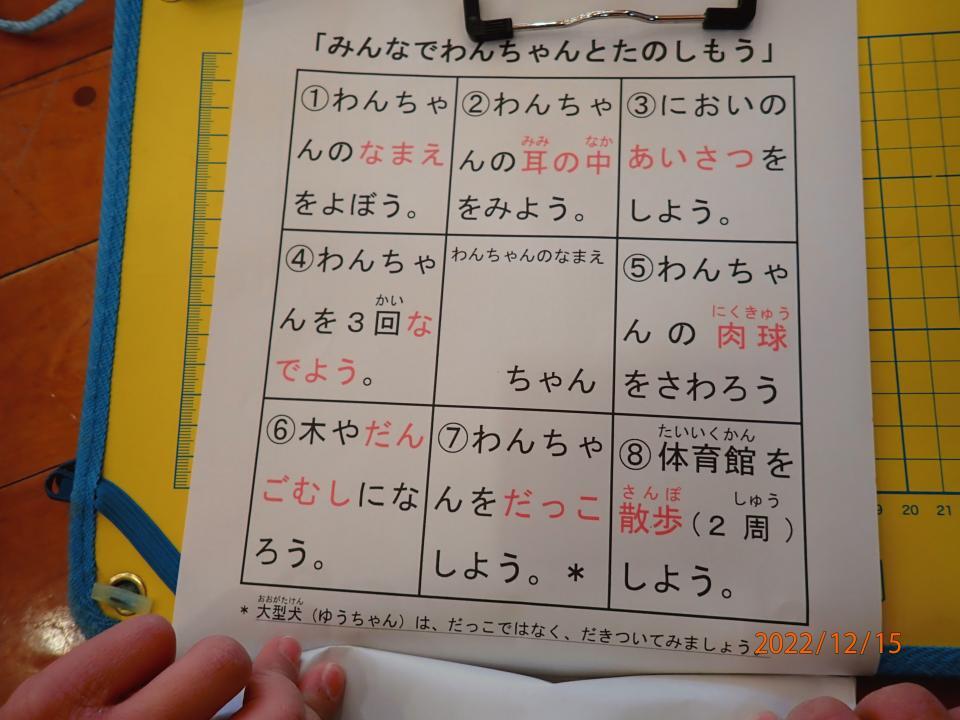 「みんなでわんちゃんとたのしもう」
①わんちゃ
んのなまえ
をよぼう。
②わんちゃ
みみ なか
んの耳の中
をみよう。
③においの
あいさつを
しよう。
④わんちゃ
かい
んを3回な
でよう。
わんちゃんのなまえ
ちゃん
⑤わんちゃ
にくきゅう
んの肉球
をさわろう
⑥木やだん
ごむしにな
ろう。
⑦わんちゃ
んをだっこ
しよう。*
たいいくかん
⑧体育館を
さんぽ しゅう
散歩(2周)
しよう。
おおがたけん
* 大型犬(ゆうちゃん)は、だっこではなく、だきついてみましょう。
2022/12/15
9 20 21